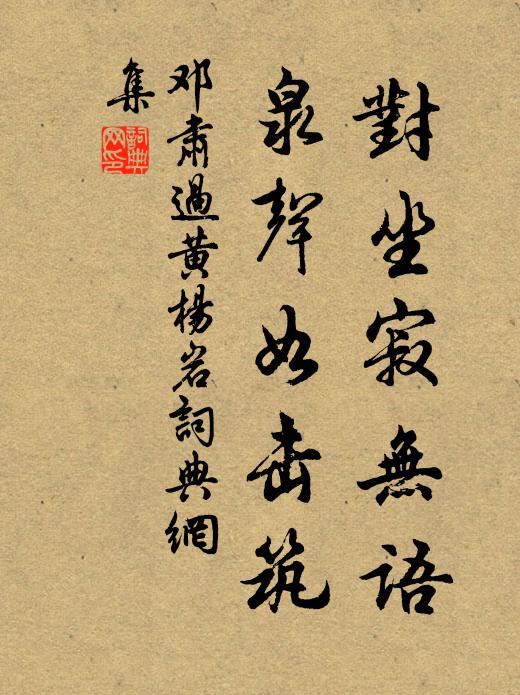 對坐寂無語
泉聲如击筑
邓肅過黄楊岩詞典網
集
詞典网印